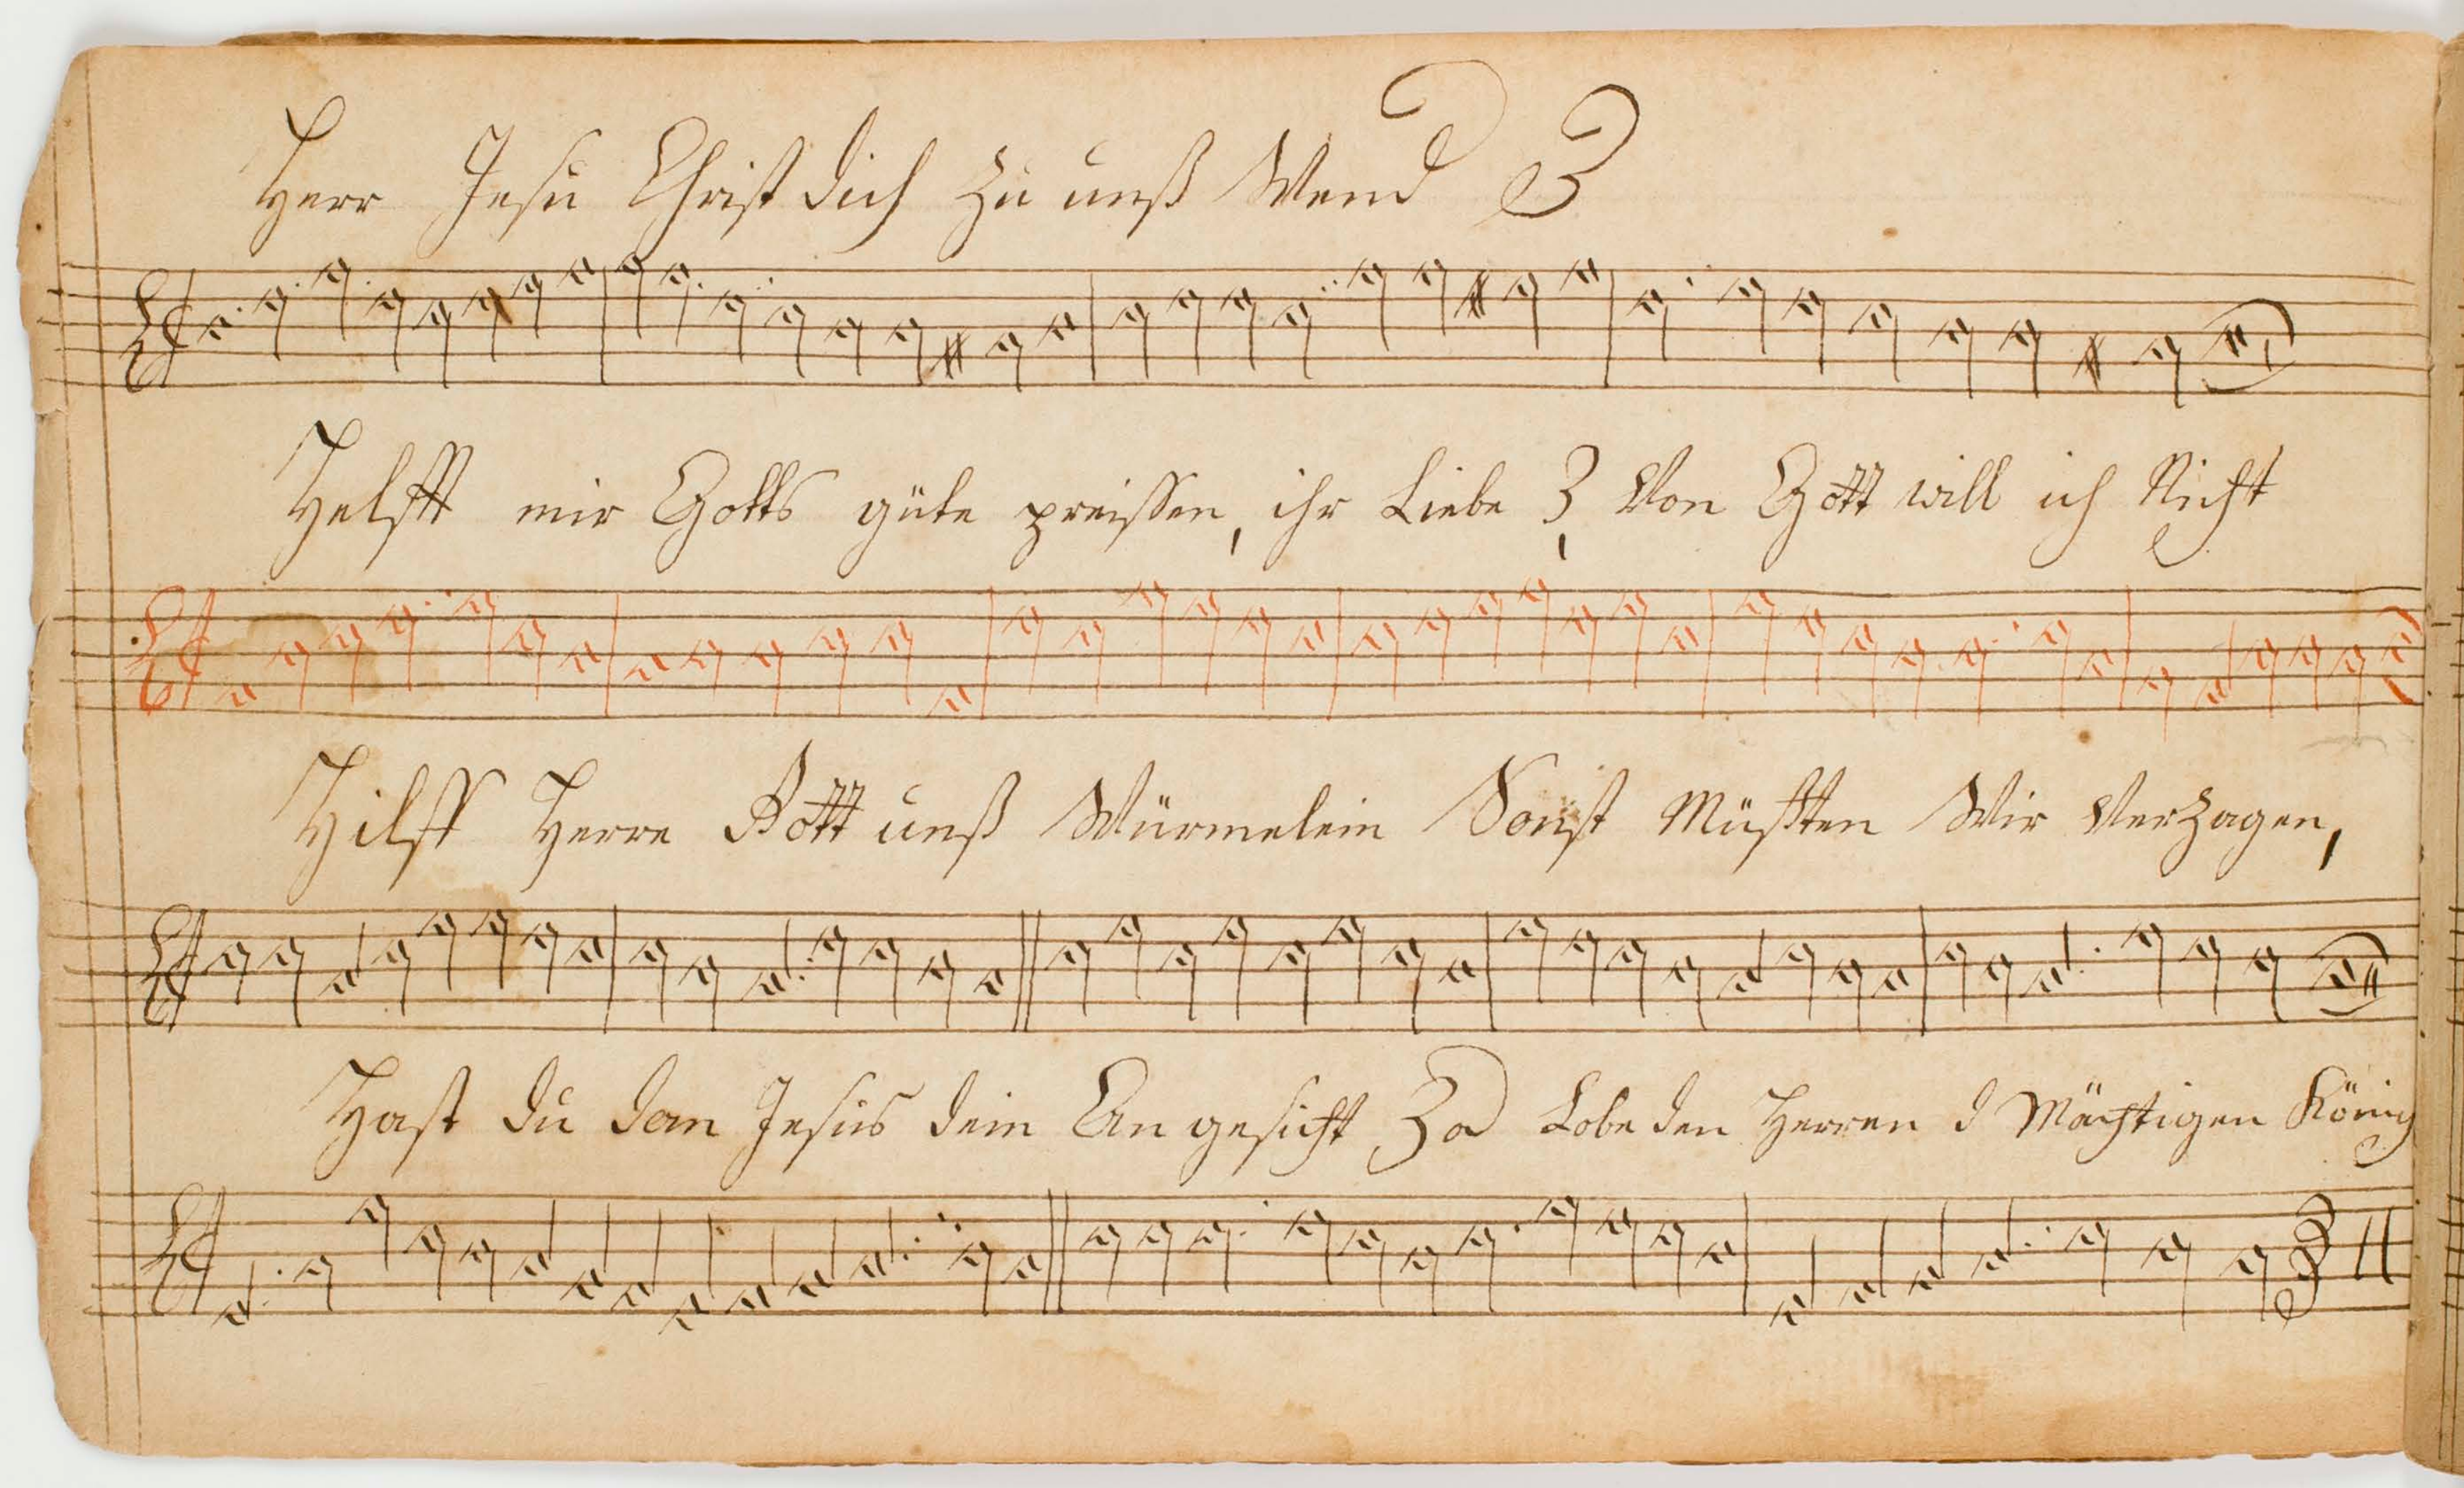 Herr Jesu Christ dich zu unß Wend
Helfft mir Gotts güte preissen, ihr Liebe Von Gott will ich Nicht
Hilff Herre Gott unß Würmelein Sonst Müßten Wir Verzagen,
Hast du dan Jesus dein An gesicht Lobe den Herren d Mächtigen König